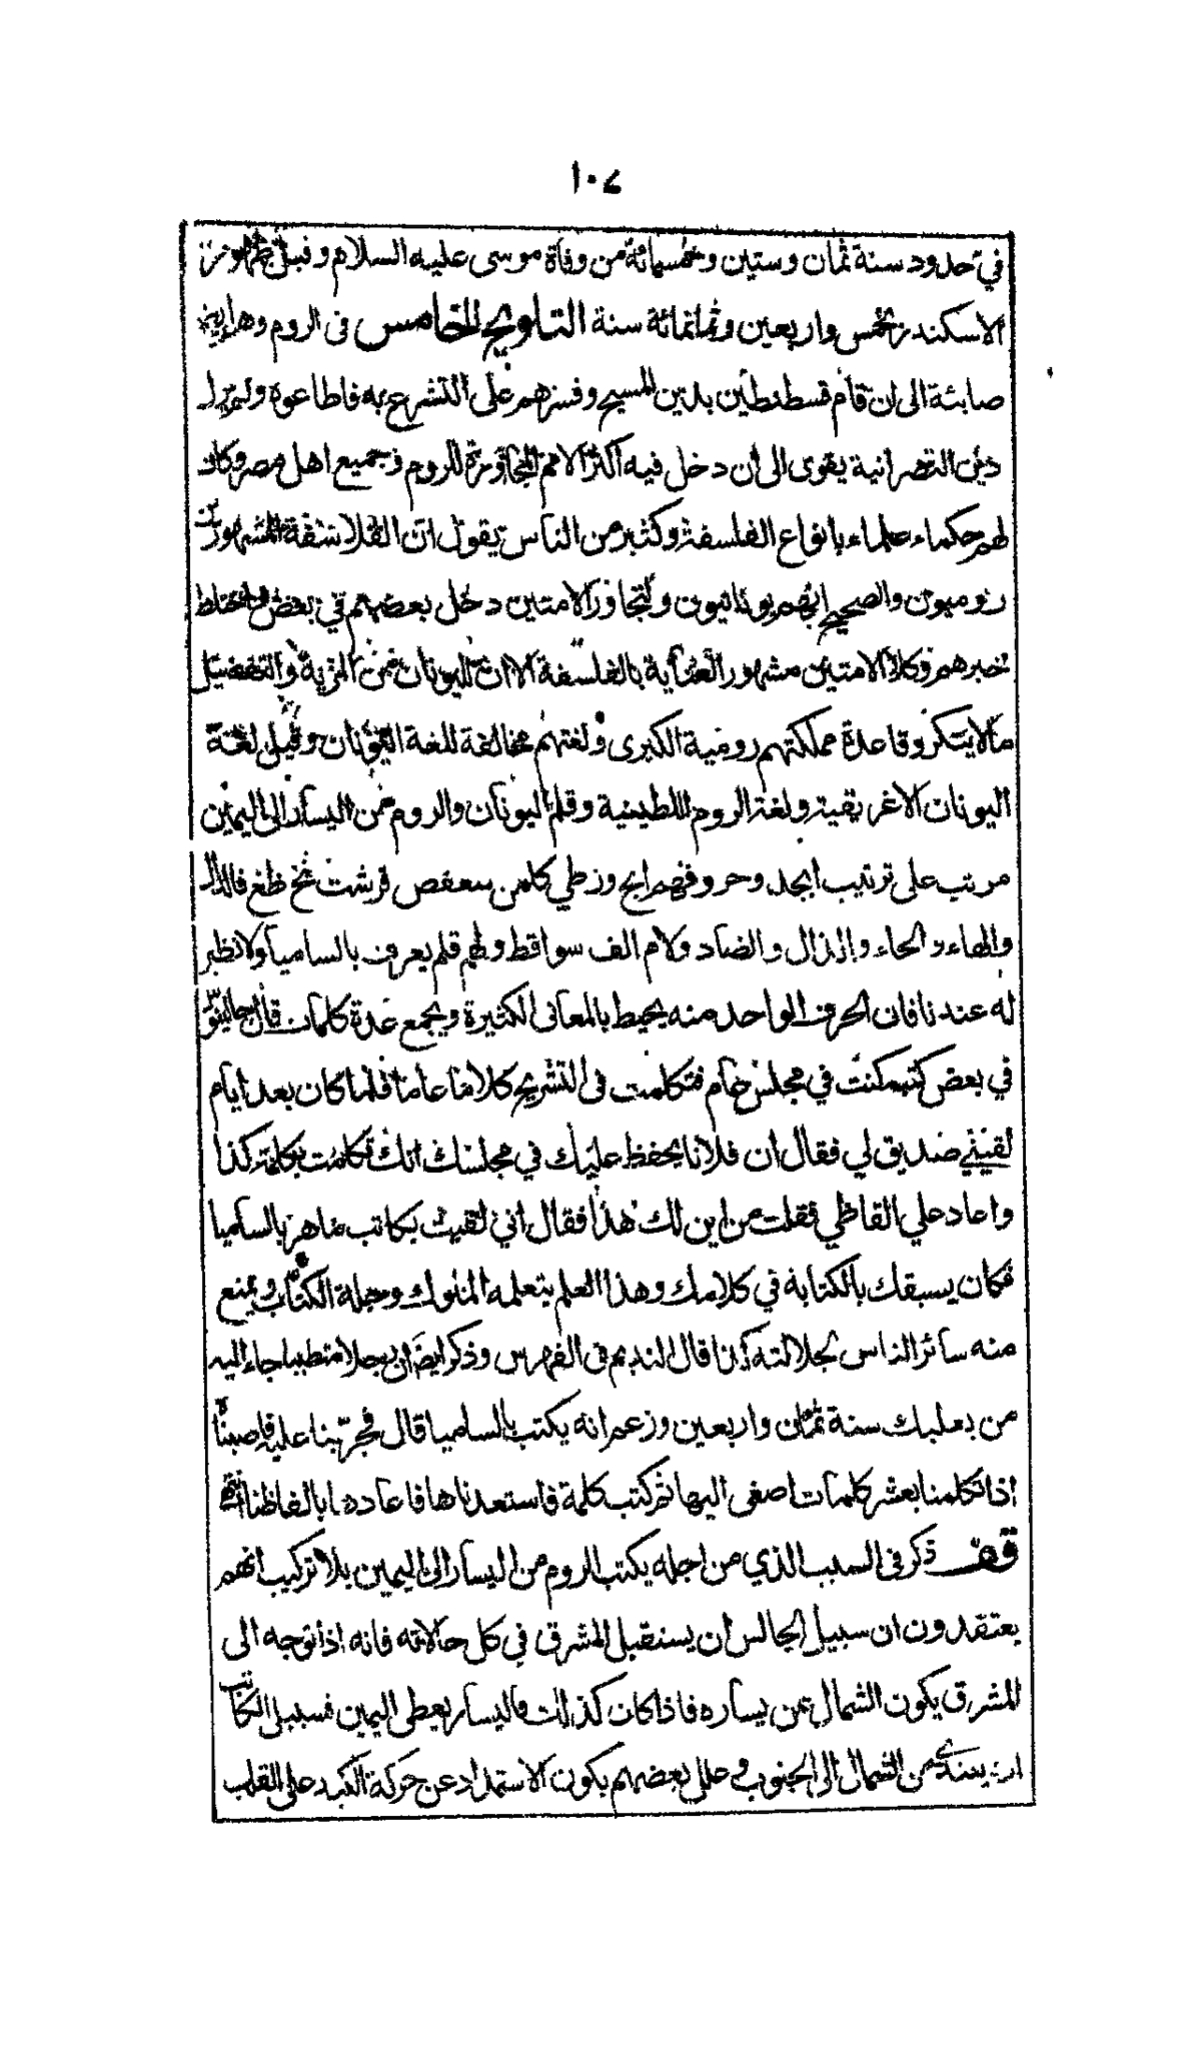 ١٠٧
في حدود سنة ثمان وستين وخمسمائة من وفاة موسى عليه السلام وقبل ظهور
الاسكندر بخمس واربعين وثمانمائة سنة التلويح الخامس فى الروم وهم ايضا
صابئة الى ان قام قسطنطين بدين المسيح وقسرهم على التشرع به فاطاعوه ولم يزل
دين النصرانية يقوى الى ان دخل فيه اكثر الامم المجاورة للروم وجميع اهل مصر وكان
لهم حكماء علماء بانواع الفلسفة وكثير من الناس يقول ان الفلاسفة المشهورين
روميون والصحيح انهم يونانيون ولتجاور الامتين دخل بعضهم في بعض واختلط
خبرهم وكلا الامتين مشهور العناية بالفلسفة الا ان لليونان من المزية والتفضيل
ما لا ينكر وقاعدة مملكتهم رومية الكبرى ولغتهم مخالفة للغة اليونان وقيل لغة
اليونان الاغريقية ولغة الروم اللطينية وقلم اليونان والروم من اليسار الى اليمين
مرتب على ترتيب ابجد وحروفهم ابج وزطي كلمن سعفص قرشت ثخ ظغ فالدال
والهاء والحاء والذال والضاد ولام الف سواقط ولهم قلم يعرف بالساميا ولا نظير
له عندنا فان الحرف الواحد منه يحيط بالمعانى الكثيرة ويجمع عدة كلمات قال جالينوس
في بعض كتبه كنت في مجلس عام فتكلمت فى التشريح كلاما عاما فلما كان بعد ايام
لقيني صديق لي فقال ان فلانا يحفظ عليك في مجلسك انك تكلمت بكلمة كذا
واعاد علي الفاظي فقلت من اين لك هذا فقال اني لقيت بكاتب ماهر بالساميا
فكان يسبقك بالكتابة في كلامك وهذا العلم يتعلمه الملوك وجلة الكتاب ويمنع
منه سائر الناس لجلالته كذا قال النديم فى الفهرس وذكر ايضا ان رجلا متطببا جاء اليه
من بعلبك سنة ثمان واربعين وزعم انه يكتب بالساميا قال فجربنا عليه فاصبنا
اذا تكلمنا بعشر كلمات اصغى اليها ثم كتب كلمة فاستعدناها فاعادها بالفاظنا انتهى
قف ذكر فى السبب الذي من اجله يكتب الروم من اليسار الى اليمين بلا تركيب انهم
يعتقدون ان سبيل الجالس ان يستقبل المشرق في كل حالاته فانه اذا توجه الى
المشرق يكون الشمال عن يساره فاذا كان كذلك فاليسار يعطى اليمين فسبيل الكاتب
ان يبتدئ من الشمال الى الجنوب وعلل بعضهم بكون الاستمداد عن حركة الكبد على القلب